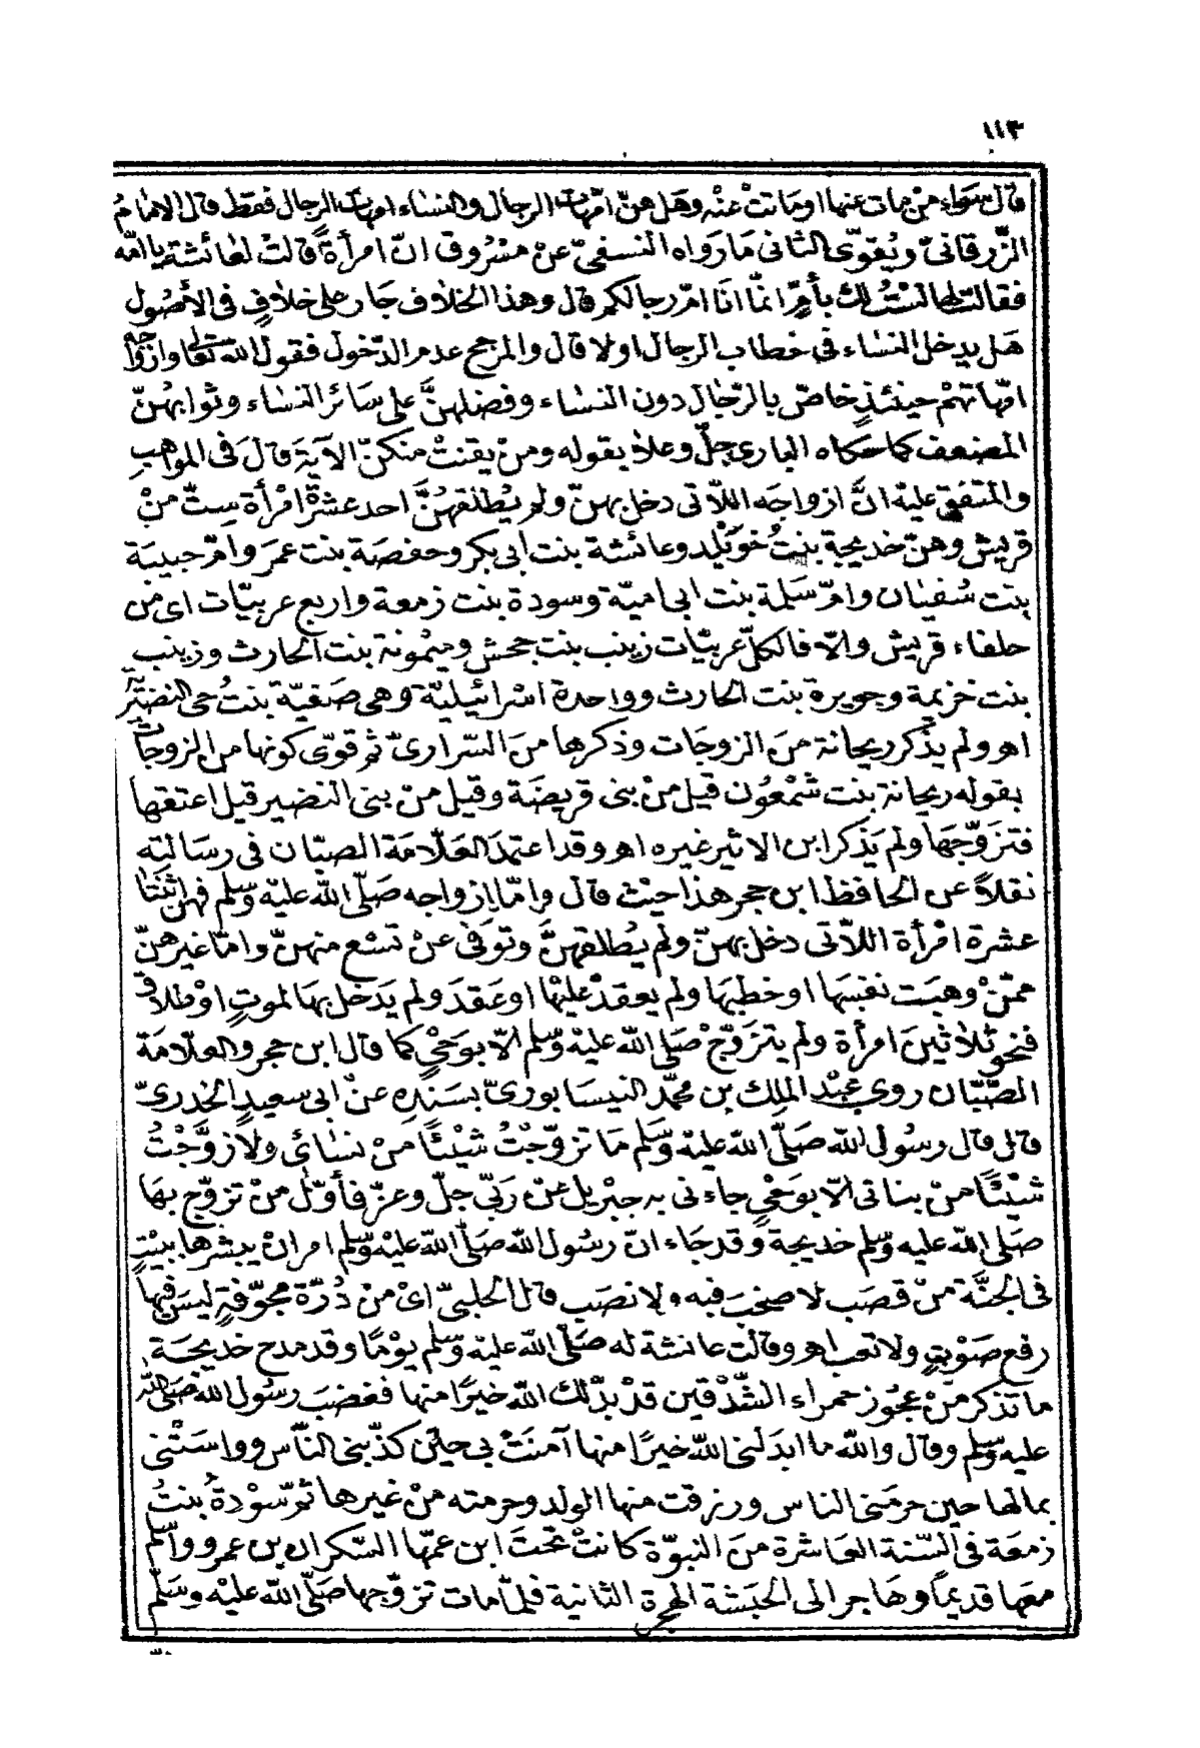 ١١٣
قال سواء من مات عنها او مَاتتْ عنْه وهَل هنّ امّهات الرجال والنساء امهات الرّجال فقط قال الامامُ
الزّرقانىّ ويُقوّى الثانى مَا رَواه النسفىّ عنْ مسْرُوق انّ امرأةً قالتْ لعَائشة يا امّه
فقالت لها لسْتُ لك بأمٍّ انمّا انَا امّ رجالكم قال وهذا الخلاف جَار على خلافٍ فى الأصُول
هَل يدخل النسَاء فى خطاب الرجال او لا قال والمرجح عدم الدّخول فقول الله تعالى وازواجه
امّهاتهمْ حينئذٍ خاصّ بالرّجال دون النسَاء وفضلهنَّ على سَائر النسَاء وثوابهُنّ
المضعف كما حكاه البارى جلّ وعلا بقوله ومنْ يقنتْ منكنّ الآيَة قالَ فى المواهبِ
والمتفق عليْه انَّ ازواجَه اللّاتى دخل بهنّ ولم يُطلقهُنَّ احد عشرَة امْرأة سِتّ منْ
قريش وهنّ خديجة بنتُ خوَيْلد وعائشة بنت ابى بكر وحفصَة بنت عمَر وامّ حبيبَة
بنت سُفيَان وامّ سَلمة بنت ابى اميّة وسودة بنت زمعة واربع عربيّات اى من
حلفاء قريش والّا فالكلّ عربيّات زينب بنت جحش وميْمونة بنت الحارث وزينب
بنت خزيمة وجويرة بنت الحارث وواحدة اسْرائيليّة وهى صَفيّة بنتُ حى النضيريّة
اهـ ولم يذْكر ريحانة منَ الزوجَات وذكرها منَ السّرارىّ ثم قوّى كونها من الزوجات
بقوله ريحانة بنت شمْعُون قيل منْ بنى قريضَة وقيل منْ بنى النضير قيل اعتقها
فتزَوّجَها ولم يَذكر ابن الاثير غيره اهـ وقد اعتمَدَ العَلّامَة الصبّان فى رسَالتِه
نقلاً عن الحَافظ ابن حجر هذا حيْث قال وامّا ازواجه صَلّى الله عليْه وسّلم فهن اثنتا
عشرة امْرأة اللّاتى دخل بهنّ ولم يُطلقهنَّ وتوَفى عنْ تسْع منهنّ وامّا غيرهنّ
ممّنْ وهبَت نفسَها او خطبَها ولم يعقدْ عليْها او عَقدَ ولم يَدخل بهَا لموتٍ اوْ طلاق
فنحو ثلاثينَ امرأة ولم يتزَوّجْ صَلى الله عليْه وسّلم الّا بوَحْىٍ كما قال ابن حجر والعلّامَة
الصّبّان روى عبْد الملك بن محمّد النيسَابورىّ بسَندِه عنْ ابى سعيدٍ الخدرىّ
قال قال رسُول الله صَلّى الله عليْه وسّلم مَا تزوّجْتُ شيْئًا منْ نسَائى ولا زوَّجْتُ
شيْئًا منْ بناتى الّا بوَحْىٍ جاءنى به جبْريل عنْ رَبّى جلّ وعزّ فأوّل منْ تزوّج بهَا
صَلى الله عليه وسّلم خديجة وقد جَاء انّ رسُول الله صَلّى الله عليْه وسّلم امر انْ يبشرها ببيْتٍ
فى الجنَّة منْ قصَب لا صخبَ فيه ولا نصَب قال الحلبىّ اىْ منْ دُرّة مجوّفةٍ ليسَ فيها
رفع صَوْتٍ ولا تعب اهـ وقالت عائشة له صَلّى الله عليْه وسّلم يوْمًا وقد مدح خديجَة
ما تذكر منْ عجُوز حمراء الشّدْقين قدْ بدّلك الله خيرًا منها فغضبَ رسُول الله صَلى الله
عليه وسّلم وقال والله ما ابدَلنى الله خيرًا منها آمنَتْ بى حيْن كذّبنى النّاس وواسَتْنى
بمالها حين حرمَنى الناس ورزقت منها الولد وحرمته منْ غيرها ثمّ سَوْدةُ بنتُ
زمعَة فى السّنة العَاشرة منَ النبوّة كانتْ تحْتَ ابن عمّها السّكران بن عمرو واسْلم
معَها قديماً وهَاجر الى الحَبشة الهجرة الثانية فلمّا مات تزوّجها صَلّى الله عليْه وسَلّم